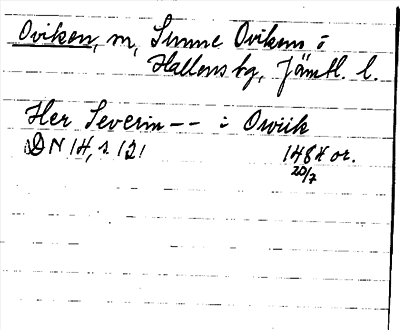 Oviken, m, Sunne Ovikens o
Hallens tg, Jämtl. l.
Her Severin -- i Owiik
DN 14, s 121
1484 or.
20/7